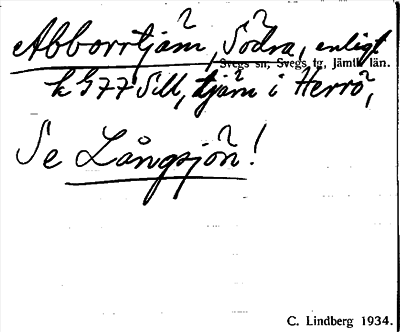 Abborrtjärn, Södra, enligt
Svegs sn, Svegs tg, Jämtl. län.
k 577 Sill, tjärn i Herrö,
Se Långsjön!
C. Lindberg 1934.